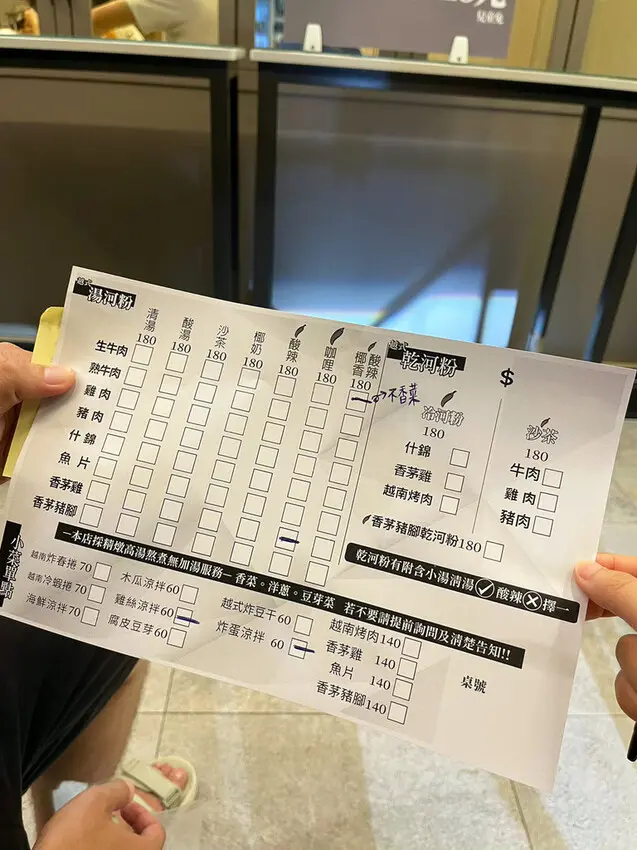 兒童免
越式
湯河粉
清湯 180
酸湯 180
沙茶 180
椰奶 180
酸辣 180
咖哩 180
酸辣椰香 180
生牛肉
熟牛肉
雞肉
豬肉
什錦
魚片
香茅雞
香茅豬腳
不香菜
越式
乾河粉
$
冷河粉
180
什錦
香茅雞
越南烤肉
香茅豬腳乾河粉180
沙茶
180
牛肉
雞肉
豬肉
乾河粉有附含小湯清湯✓酸辣✗擇一
–本店採精燉高湯熬煮無加湯服務–香菜。洋蔥。豆芽菜 若不要請提前詢問及清楚告知!!
小菜單點
越南炸春捲 70
越南冷蝦捲 70
海鮮涼拌 70
木瓜涼拌 60
雞絲涼拌 60
腐皮豆芽 60
越式炸豆干 60
炸蛋涼拌 60
越南烤肉 140
香茅雞 140
魚片 140
香茅豬腳 140
桌號